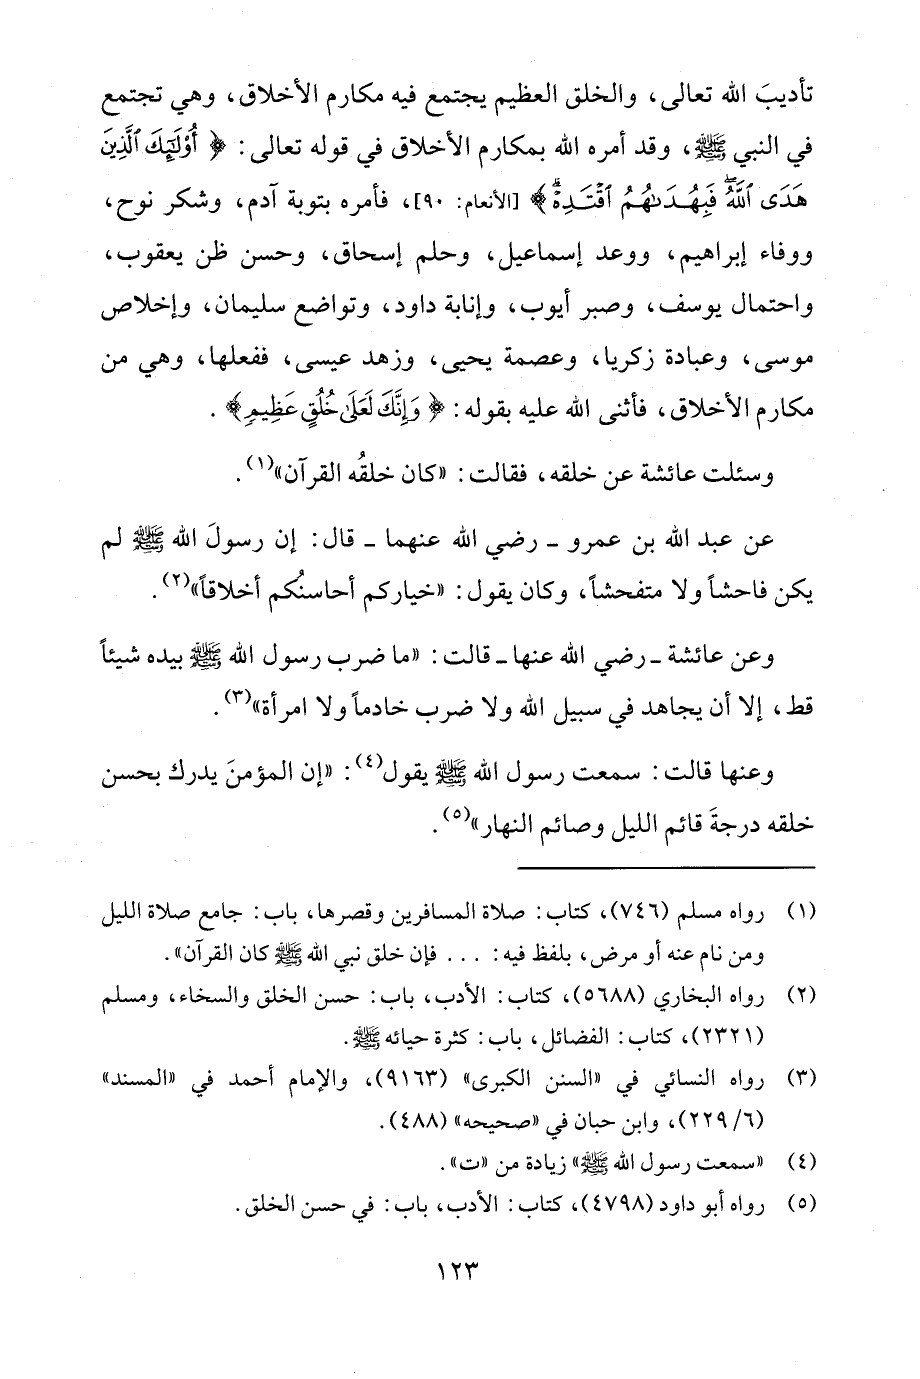 تأديبَ الله تعالى، والخلق العظيم يجتمع فيه مكارم الأخلاق، وهي تجتمع
في النبي ﷺ، وقد أمره الله بمكارم الأخلاق في قوله تعالى: ﴿أُوْلَٰٓئِكَ ٱلَّذِينَ
هَدَى ٱللَّهُۖ فَبِهُدَىٰهُمُ ٱقْتَدِهْۗ﴾ [الأنعام: ٩٠]، فأمره بتوبة آدم، وشكر نوح،
ووفاء إبراهيم، ووعد إسماعيل، وحلم إسحاق، وحسن ظن يعقوب،
واحتمال يوسف، وصبر أيوب، وإنابة داود، وتواضع سليمان، وإخلاص
موسى، وعبادة زكريا، وعصمة يحيى، وزهد عيسى، ففعلها، وهي من
مكارم الأخلاق، فأثنى الله عليه بقوله: ﴿وَإِنَّكَ لَعَلَىٰ خُلُقٍ عَظِيمٖ﴾.
وسئلت عائشة عن خلقه، فقالت: «كان خلقُه القرآن»(١).
عن عبد الله بن عمرو ـ رضي الله عنهما ـ قال: إن رسولَ الله ﷺ لم
يكن فاحشاً ولا متفحشاً، وكان يقول: «خياركم أحاسنُكم أخلاقاً»(٢).
وعن عائشة ـ رضي الله عنها ـ قالت: «ما ضرب رسول الله ﷺ بيده شيئاً
قط، إلا أن يجاهد في سبيل الله ولا ضرب خادماً ولا امرأة»(٣).
وعنها قالت: سمعت رسول الله ﷺ يقول(٤): «إن المؤمنَ يدرك بحسن
خلقه درجةَ قائم الليل وصائم النهار»(٥).
(١) رواه مسلم (٧٤٦)، كتاب: صلاة المسافرين وقصرها، باب: جامع صلاة الليل
ومن نام عنه أو مرض، بلفظ فيه: ... فإن خلق نبي الله ﷺ كان القرآن».
(٢) رواه البخاري (٥٦٨٨)، كتاب: الأدب، باب: حسن الخلق والسخاء، ومسلم
(٢٣٢١)، كتاب: الفضائل، باب: كثرة حيائه ﷺ.
(٣) رواه النسائي في «السنن الكبرى» (٩١٦٣)، والإمام أحمد في «المسند»
(٦/ ٢٢٩)، وابن حبان في «صحيحه» (٤٨٨).
(٤) «سمعت رسول الله ﷺ» زيادة من «ت».
(٥) رواه أبو داود (٤٧٩٨)، كتاب: الأدب، باب: في حسن الخلق.
١٢٣